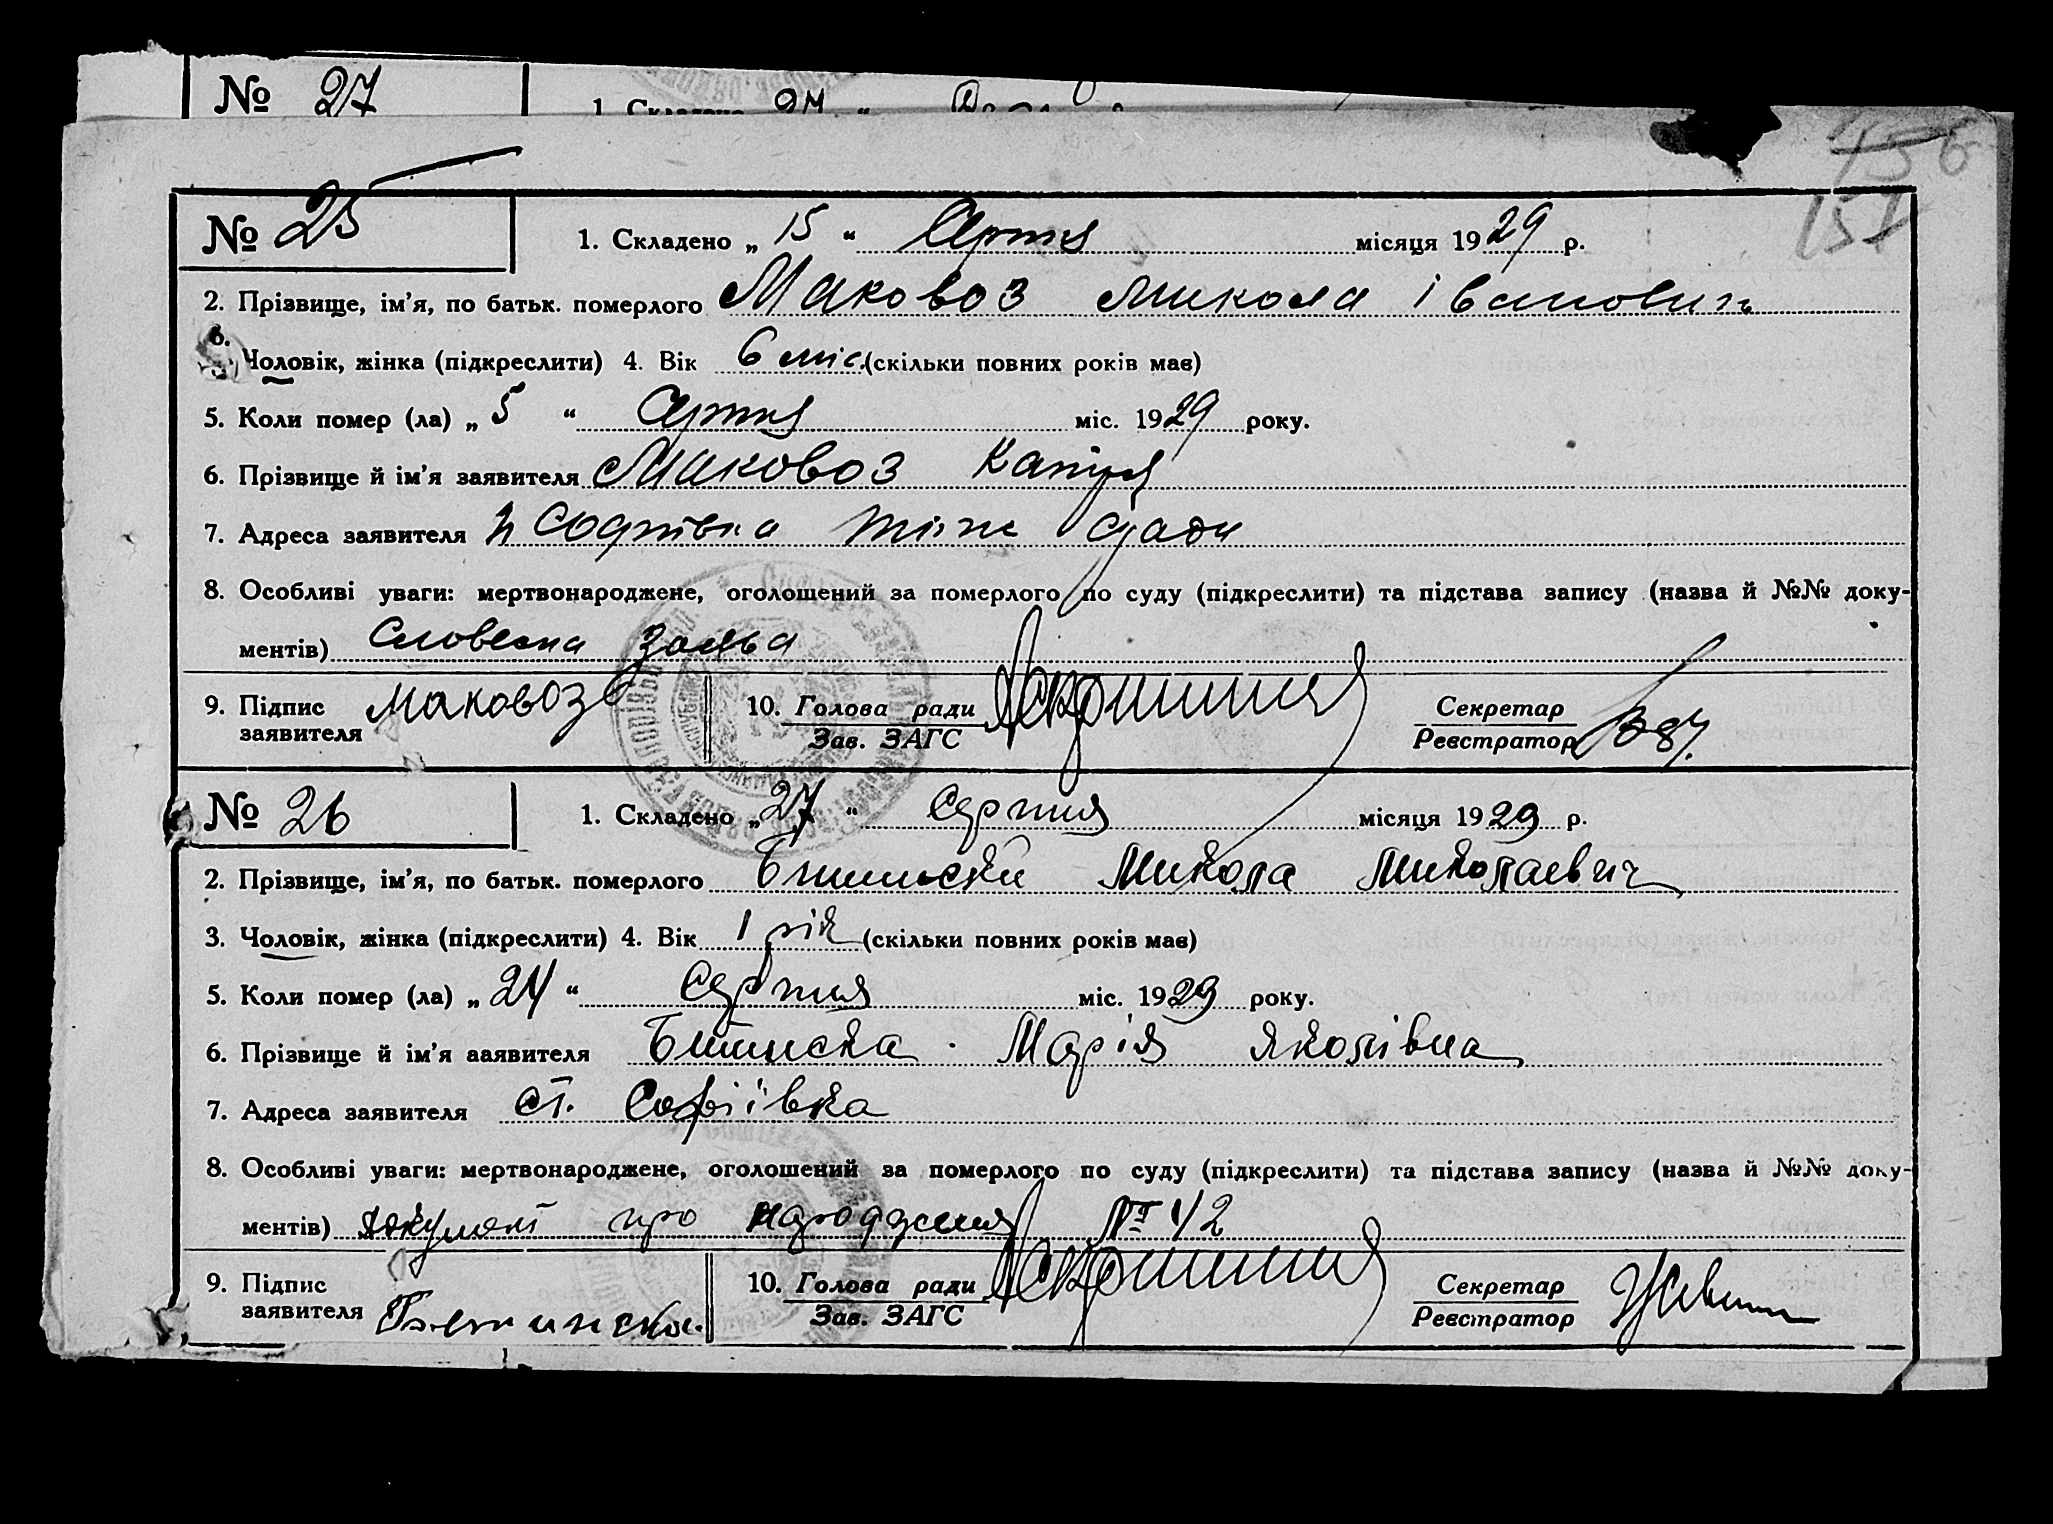 № 27
1. Складено „ 24 “
156
151
№ 25
1. Складено „ 15 “ Серпня місяця 1929 р.
2. Прізвище, ім'я, по батьк. померлого Маковоз Микола Іванович
Чоловік, жінка (підкреслити) 4. Вік 6 міс. (скільки повних років має)
5. Коли помер (ла) „ 5 “ Серпня міс. 1929 року.
6. Прізвище й ім'я заявителя Маковоз
7. Адреса заявителя Софіївка тіїж Ради
8. Особливі уваги: мертвонароджене, оголошений за померлого по суду (підкреслити) та підстава запису (назва й №№ доку-
ментів) Словесна заява
9. Підпис заявителя Маковоз 10. Голова ради Зав. ЗАГС Секретар Реєстратор
№ 26
1. Складено „ 27 “ Серпня місяця 1929 р.
2. Прізвище, ім'я, по батьк. померлого Микола Миколаевич
3. Чоловік, жінка (підкреслити) 4. Вік 1 рік (скільки повних років має)
5. Коли помер (ла) „ 24 “ Серпня міс. 1929 року.
6. Прізвище й ім'я заявителя Марія Яковівна
7. Адреса заявителя ст. Софіївка
8. Особливі уваги: мертвонароджене, оголошений за померлого по суду (підкреслити) та підстава запису (назва й №№ доку-
ментів) документ про народження № 42
9. Підпис заявителя 10. Голова ради Зав. ЗАГС Секретар Реєстратор